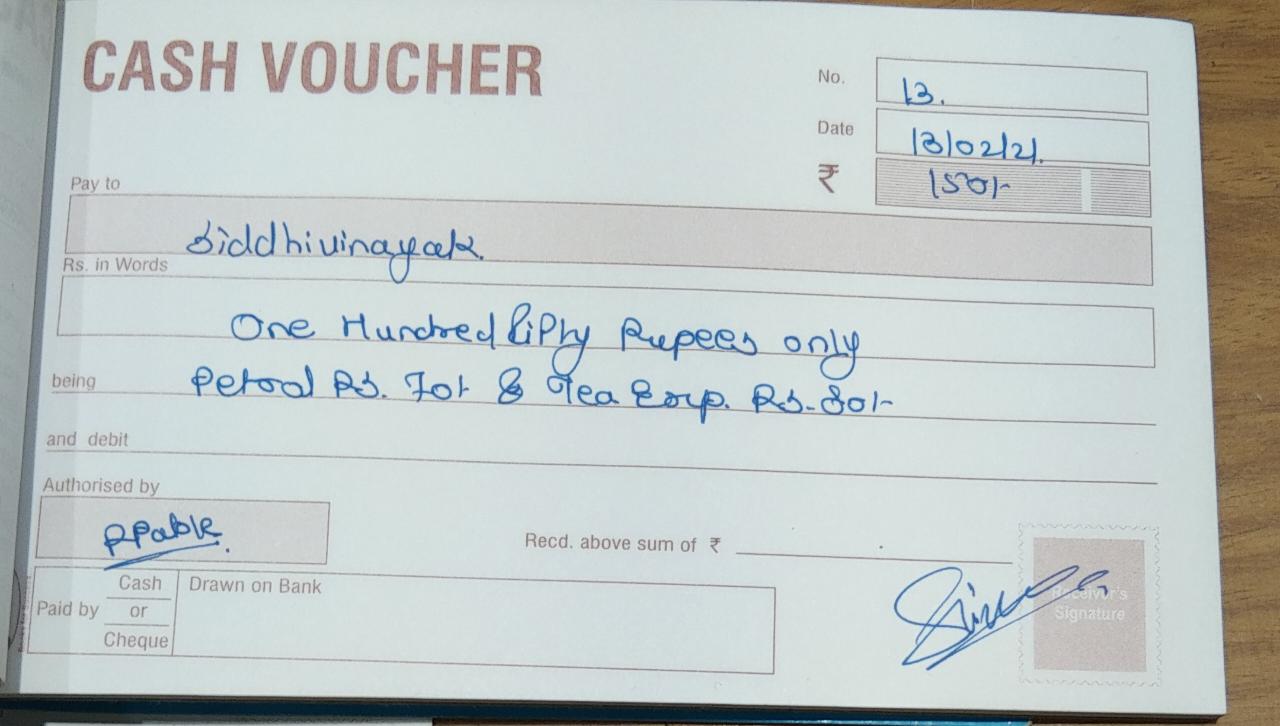 CASH VOUCHER
No. 13.
Date 13/02/21.
₹ 150/-
Pay to
Siddhivinayak.
Rs. in Words
One Hundred fifty Rupees only
being Petrol Rs. 70/- & Tea Exp. Rs. 80/-
and debit
Authorised by
Recd. above sum of ₹
Paid by Cash or Cheque
Drawn on Bank
Receiver's
Signature